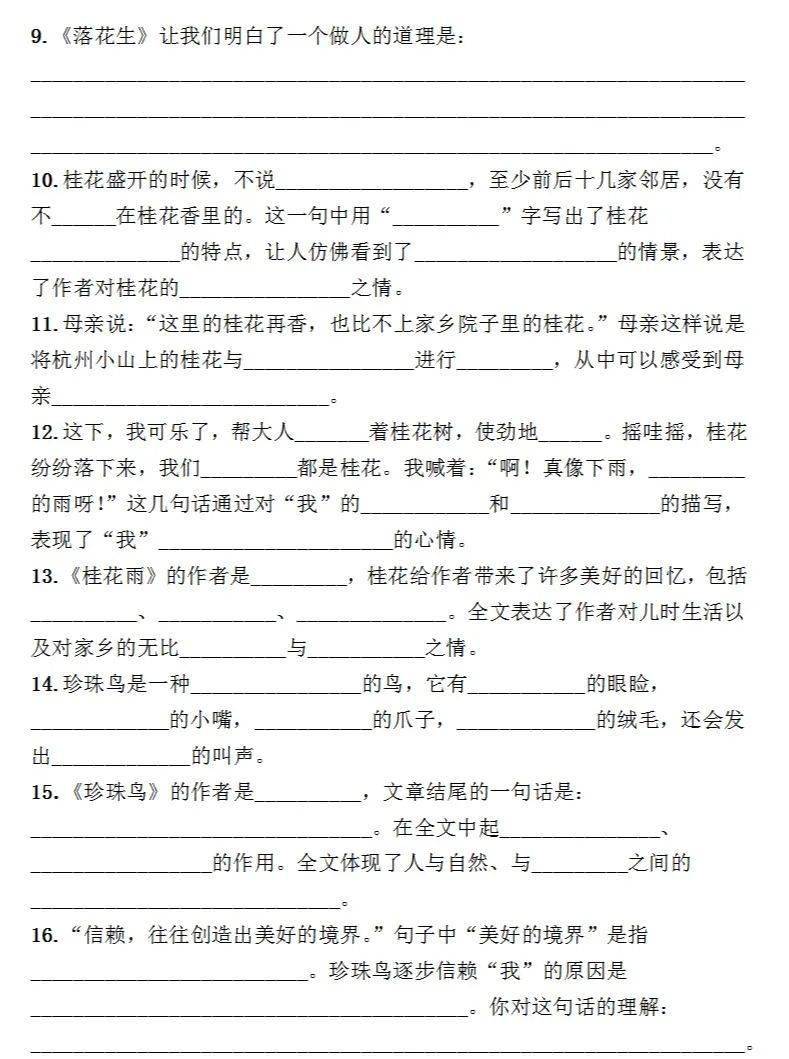 9.《落花生》让我们明白了一个做人的道理是：
____________________________________________________________________
____________________________________________________________________
_________________________________________________________________。
10.桂花盛开的时候，不说__________________，至少前后十几家邻居，没有
不______在桂花香里的。这一句中用“__________”字写出了桂花
______________的特点，让人仿佛看到了___________________的情景，表达
了作者对桂花的________________之情。
11.母亲说：“这里的桂花再香，也比不上家乡院子里的桂花。”母亲这样说是
将杭州小山上的桂花与________________进行_________，从中可以感受到母
亲__________________________。
12.这下，我可乐了，帮大人_______着桂花树，使劲地______。摇哇摇，桂花
纷纷落下来，我们_________都是桂花。我喊着：“啊！真像下雨，_________
的雨呀！”这几句话通过对“我”的____________和______________的描写，
表现了“我”______________________的心情。
13.《桂花雨》的作者是_________，桂花给作者带来了许多美好的回忆，包括
__________、___________、______________。全文表达了作者对儿时生活以
及对家乡的无比__________与___________之情。
14.珍珠鸟是一种________________的鸟，它有___________的眼睑，
_____________的小嘴，___________的爪子，_____________的绒毛，还会发
出_____________的叫声。
15.《珍珠鸟》的作者是__________，文章结尾的一句话是：
________________________________。在全文中起_______________、
_________________的作用。全文体现了人与自然、与_________之间的
_____________________________。
16.“信赖，往往创造出美好的境界。”句子中“美好的境界”是指
__________________________。珍珠鸟逐步信赖“我”的原因是
_________________________________________。你对这句话的理解：
____________________________________________________________________。